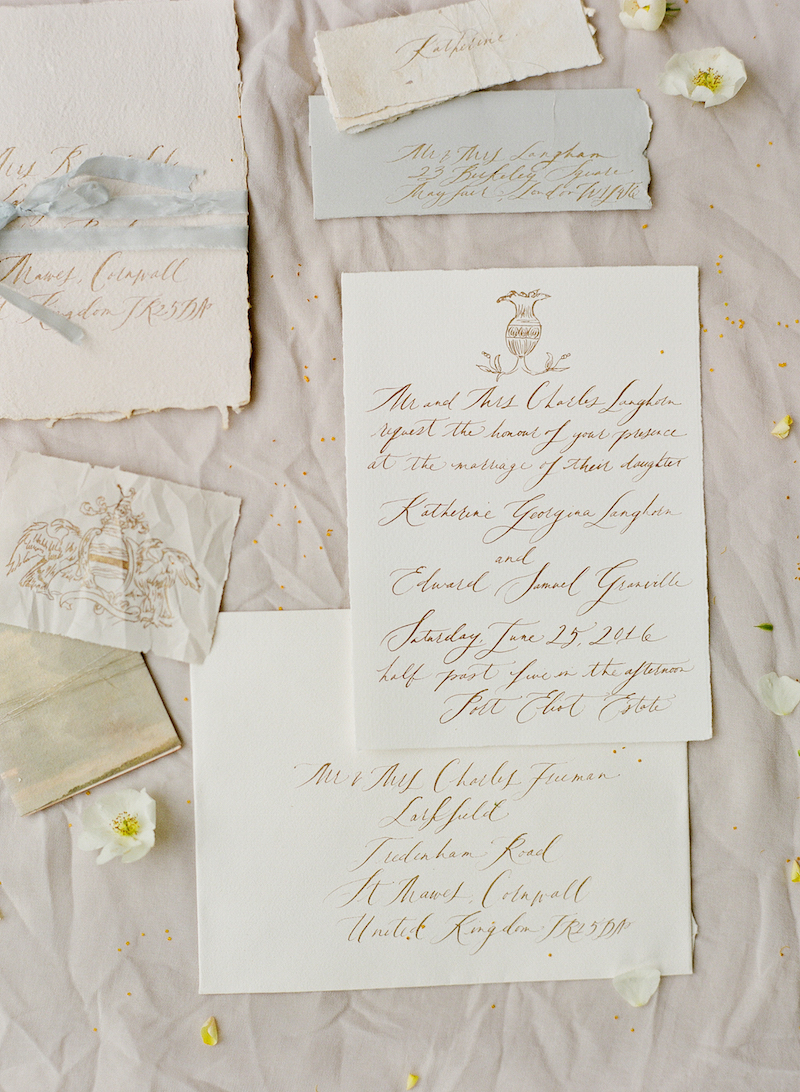 Katherine
Mr & Mrs Langham
23 Berkeley Square
Mayfair, London
Mrs
Mawes, Cornwall
Kingdom
Mr and Mrs Charles Langhorn
request the honour of your presence
at the marriage of their daughter
Katherine Georgina Langhorn
and
Edward Samuel Granville
Saturday, June 25, 2016
half past five in the afternoon
Port Eliot Estate
Mr & Mrs Charles Freeman
Larkfield
Tredenham Road
St Mawes, Cornwall
United Kingdom TR25DN